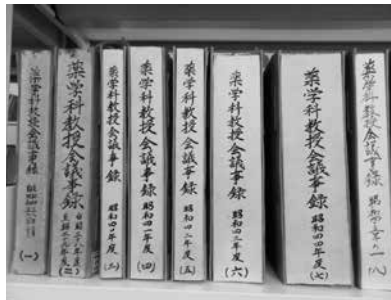 薬学科教授会議事録
(一)
薬学科教授会議事録
(二)
薬学科教授会議事録
昭和四〇年度
(三)
薬学科教授会議事録
昭和四一年度
(四)
薬学科教授会議事録
昭和四二年度
(五)
薬学科教授会議事録
昭和四三年度
(六)
薬学科教授会議事録
昭和四四年度
(七)
薬学科教授会議事録
(八)